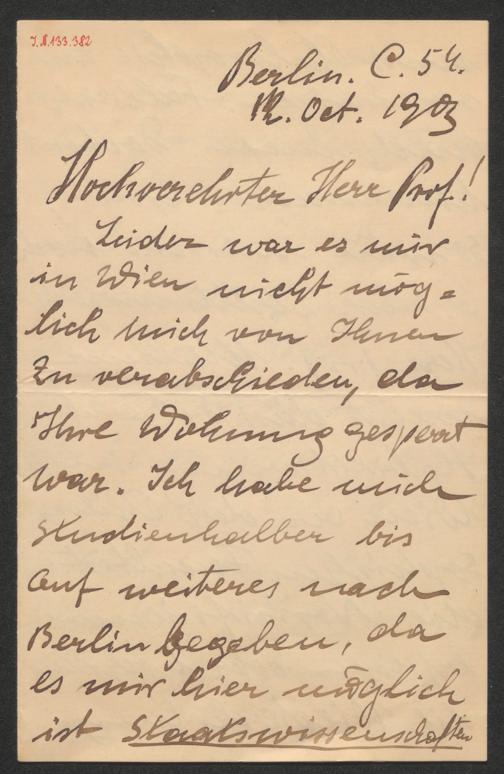 I.N.133.382
Berlin. C. 54.
12. Oct. 1903
Hochverehrter Herr Prof!
Leider war es mir
in Wien nicht mög=
lich mich von Ihnen
zu verabschieden, da
Ihre Wohnung gesperrt
war. Ich habe mich
Studienhalber bis
auf weiteres nach
Berlin begeben, da
es mir hier möglich
ist Staatswissenschaften